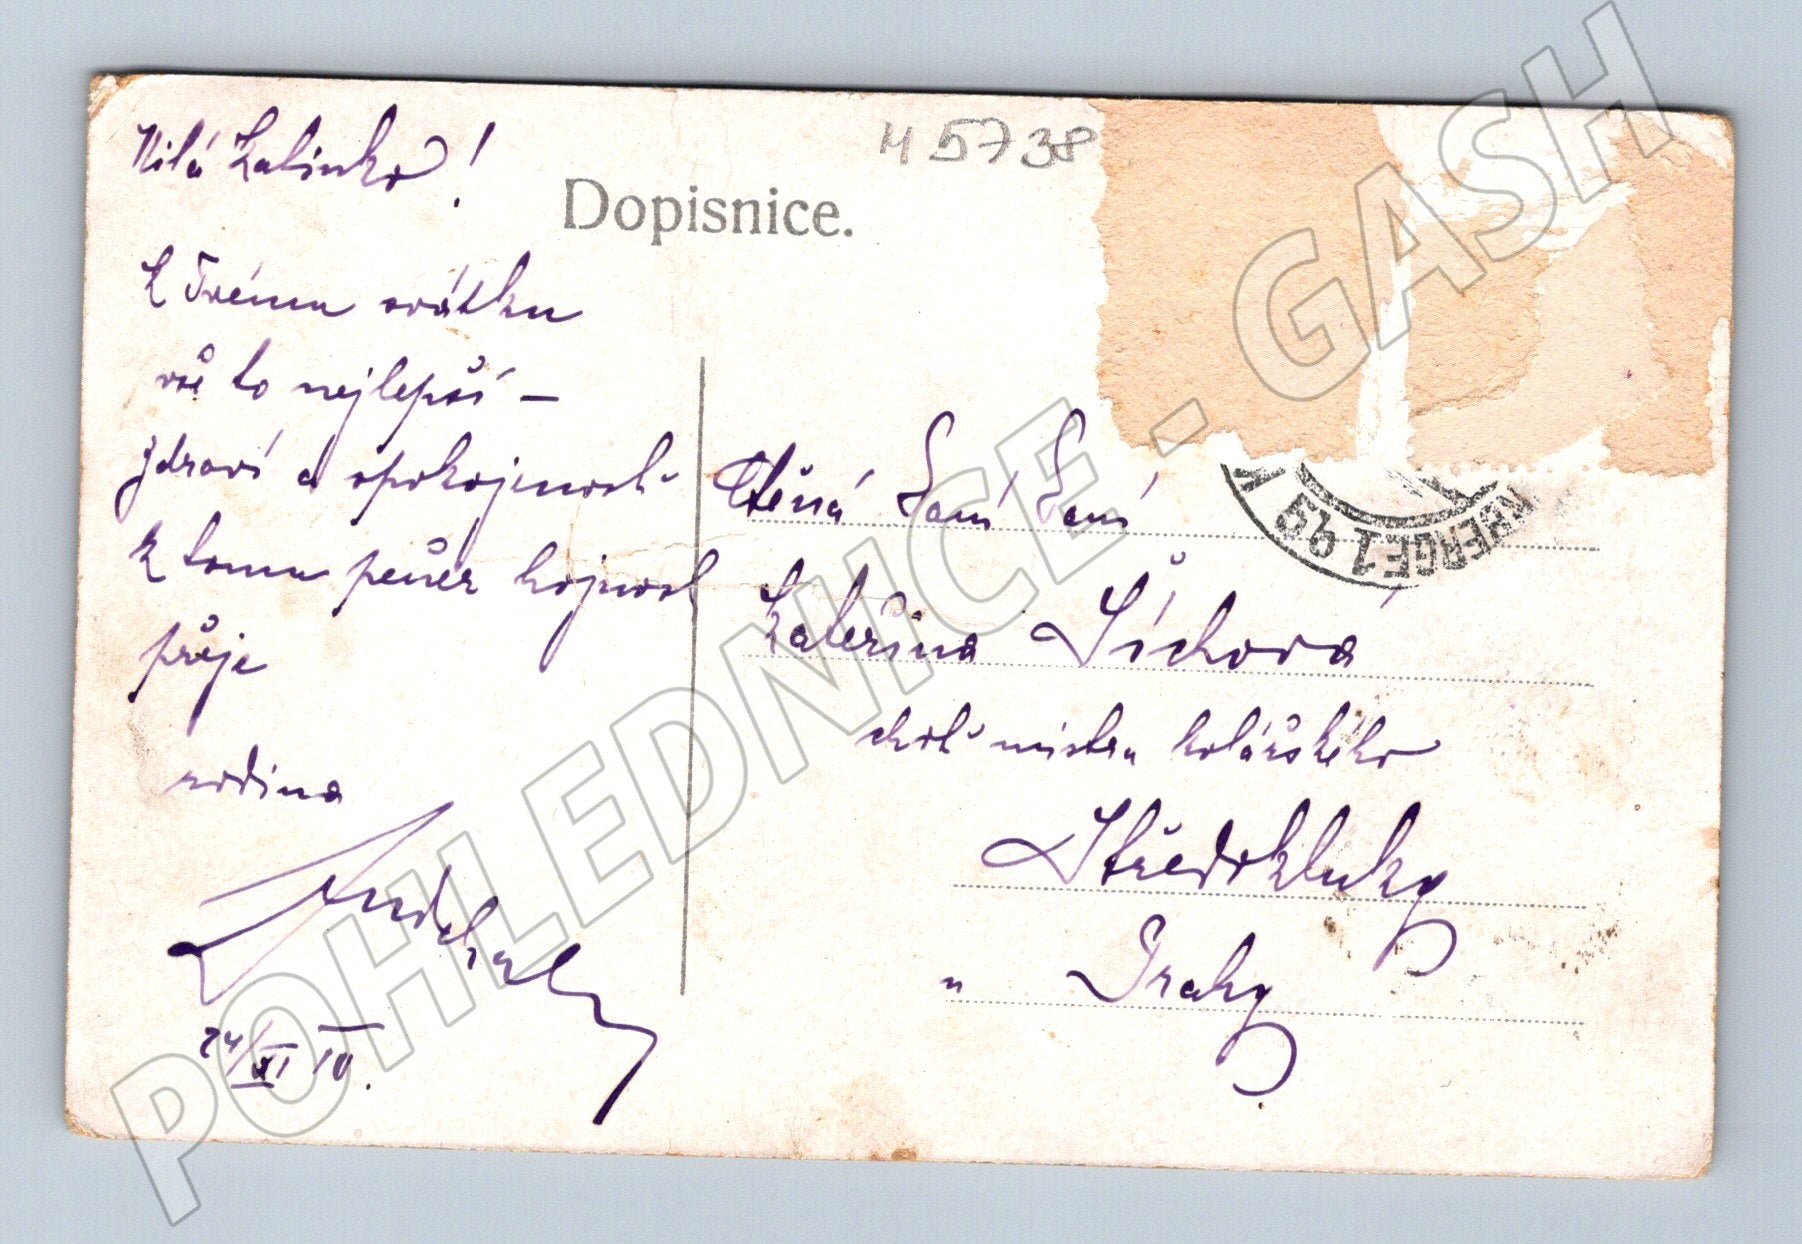 Milá Kalinko!
K Tvému svátku
vše to nejlepší —
zdraví a spokojenost
k tomu peněz hojnost
přeje
rodina
24/XI 10.
M 5738
Dopisnice.
Ctěná Paní Paní
Kateřina Síchová
choť mistra kolářského
Středokluky
u Prahy
POHLEDNICE - GASH